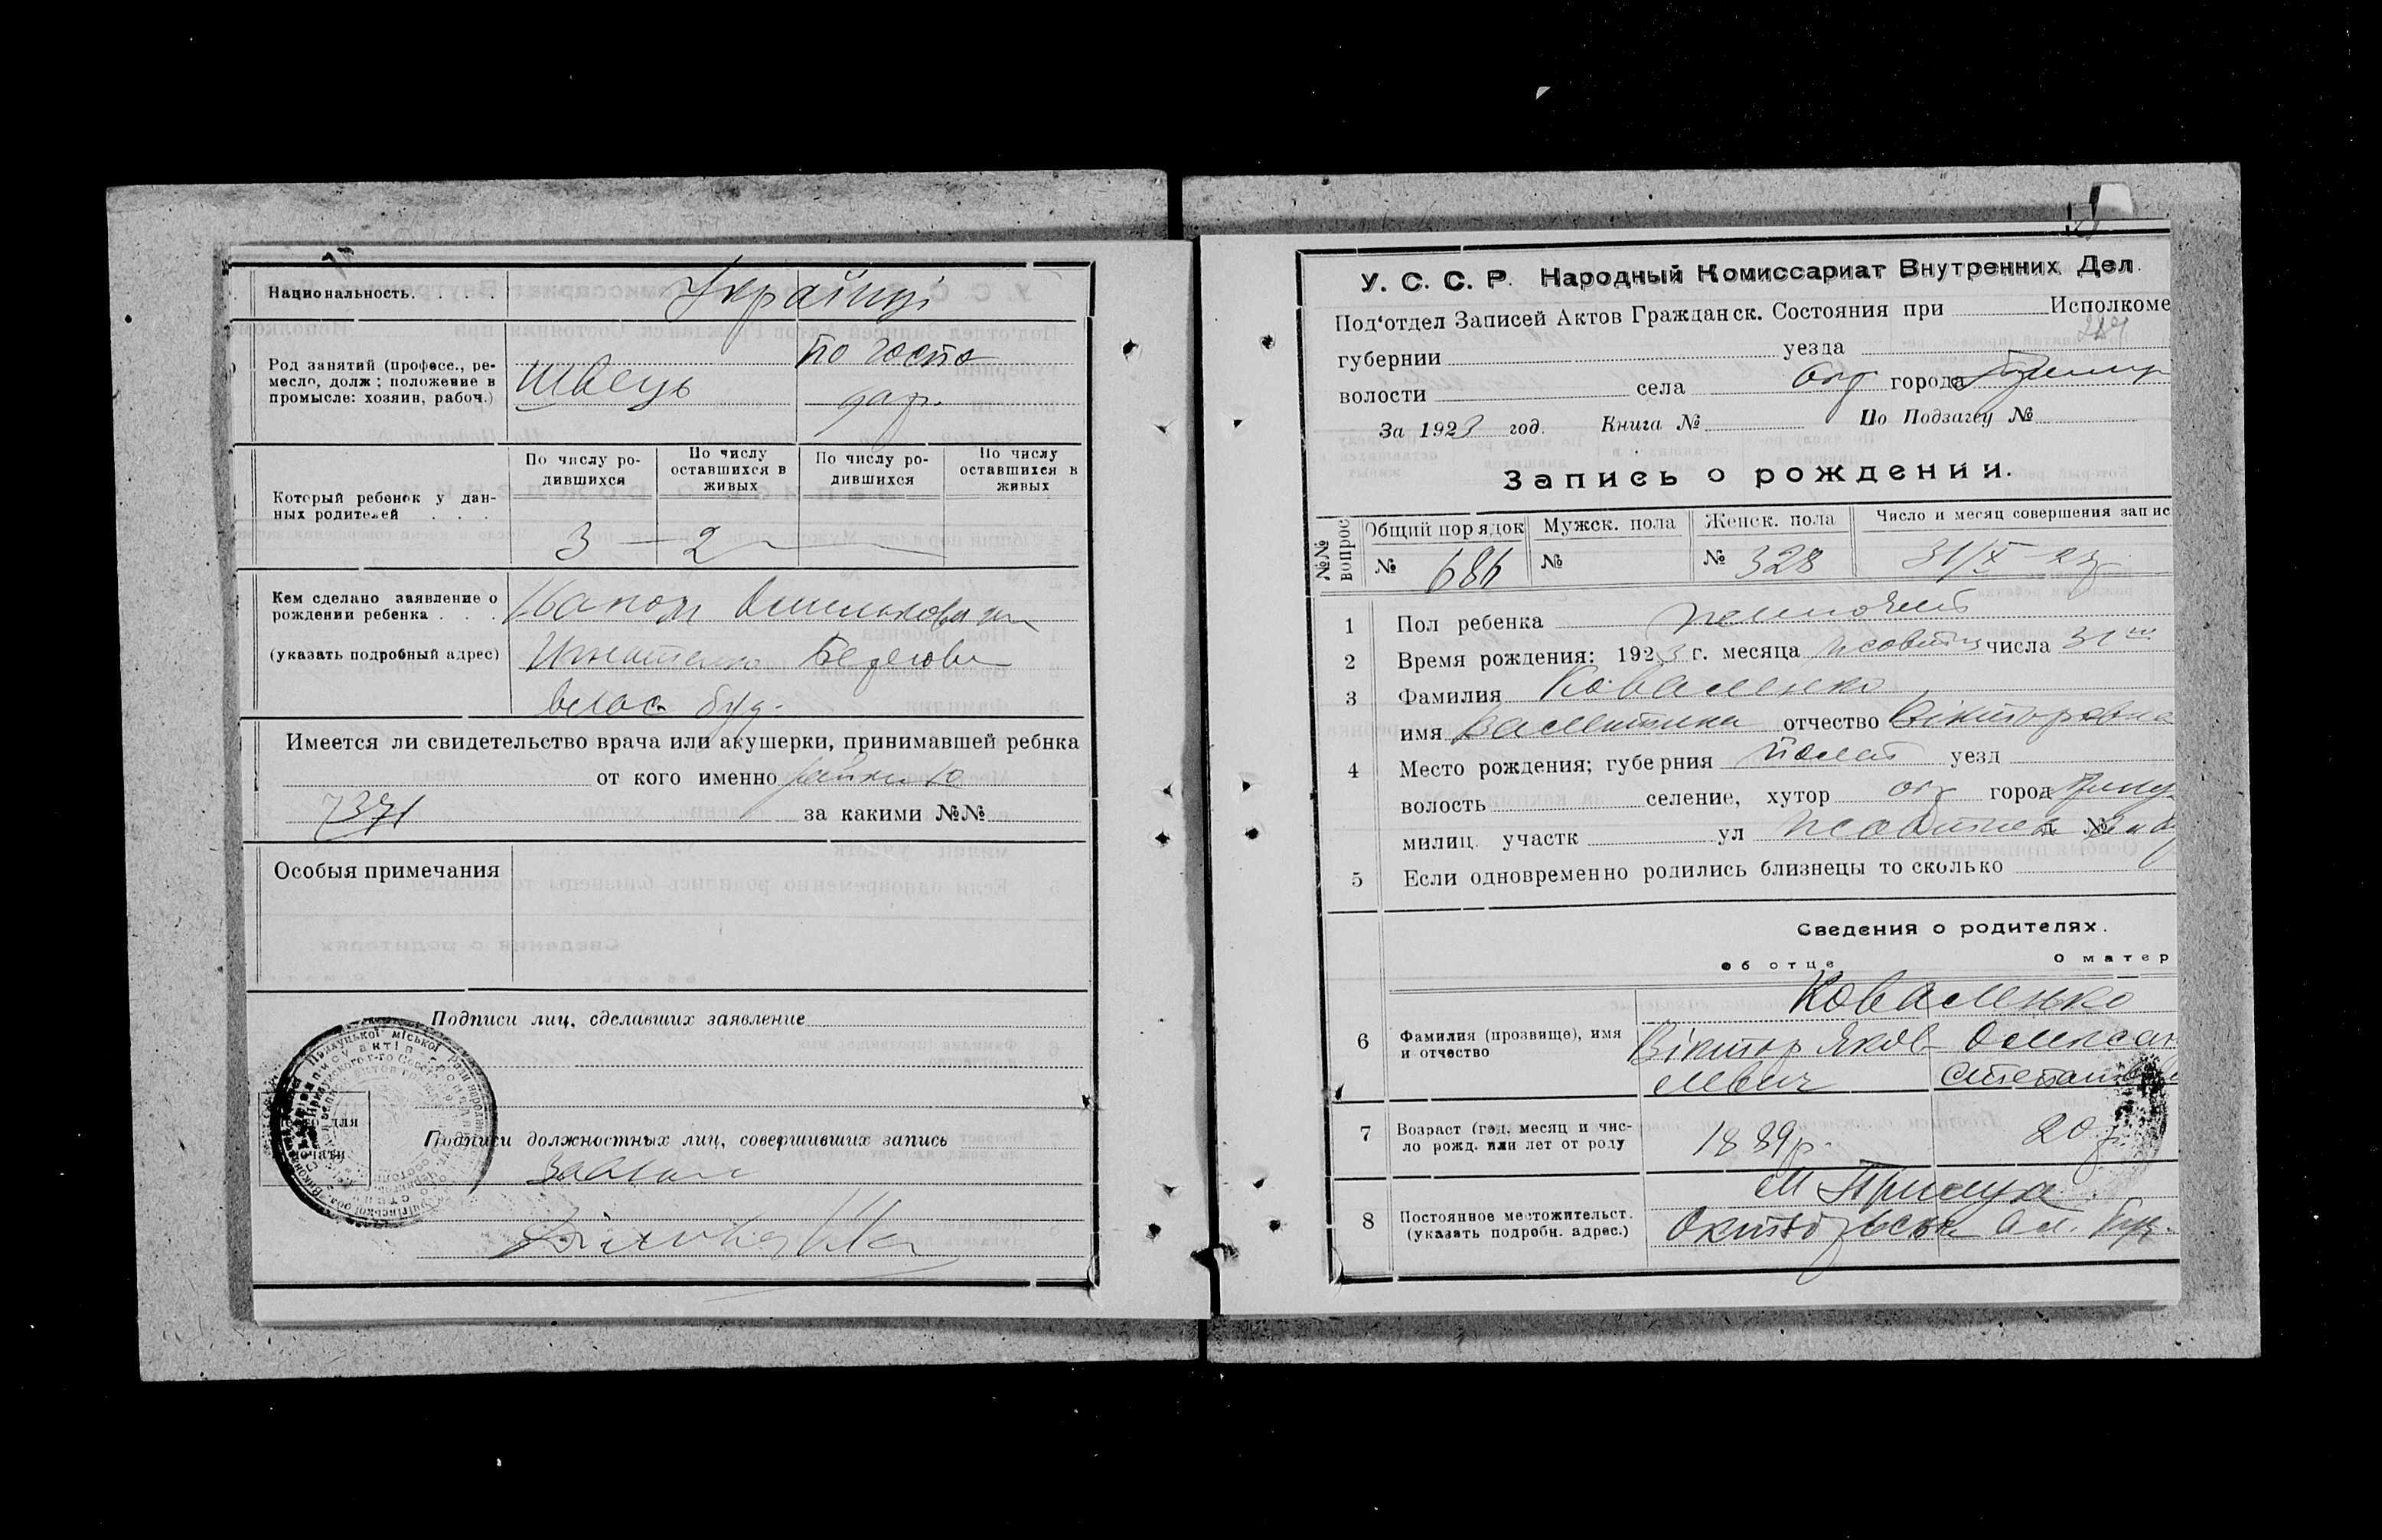 Национальность. . . . .
Українці
Род занятий (професс., ре-
месло, долж; положение в
промысле: хозяин, рабоч.)
Швець
по госпо
дар.
Который ребенок у дан-
ных родителей . . .
По числу ро-
дившихся
По числу
оставшихся в
живых
По числу ро-
дившихся
По числу
оставшихся в
живых
3 — 2
Кем сделано заявление о
рождении ребенка . . .
(указать подробный адрес)
влас. буд.
Имеется ли свидетельство врача или акушерки, принимавшей ребнка
от кого именно
737 за какими №№
Особыя примечания
Подписи лиц, сделавших заявление
Подписи должностных лиц, совершивших запись
У. С. С. Р. Народный Комиссариат Внутренних Дел.
Под‘отдел Записей Актов Гражданск. Состояния при Исполкоме
губернии уезда
волости села города
За 1923 год. Книга № По Подзагсу №
Запись о рождении.
№№ вопрос
Общий порядок
Мужск. пола
Женск. пола
Число и месяц совершения запис
№ 686 № № 328 31/X 23
1 Пол ребенка
2 Время рождения: 1923 г. месяца числа 31
3 Фамилия Коваленко
имя Валентина отчество Вікторовна
4 Место рождения; губерния Полт уезд
волость селение, хутор город
милиц. участк ул д №
5 Если одновременно родились близнецы то сколько
Сведения о родителях.
об отце
о матер
Коваленко
6 Фамилия (прозвище), имя
и отчество
Віктор Яков
левич
Олександ
Степанов
7 Возраст (год, месяц и чис-
ло рожд. или лет от роду
1889 р.
20 р.
8 Постоянное местожительст.
(указать подробн. адрес.)
м Прилука